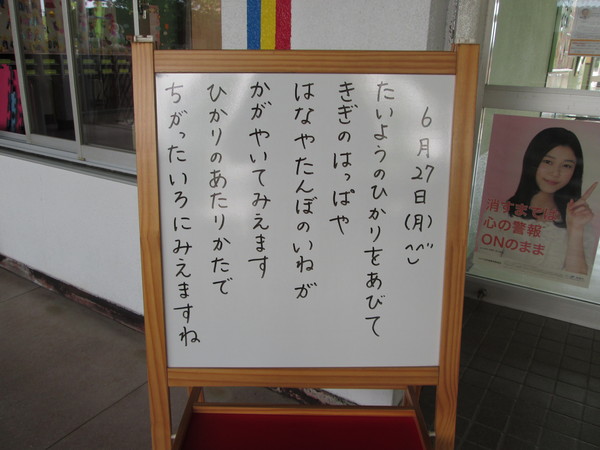 6月27日(月)^^
たいようのひかりをあびて
きぎのはっぱや
はなやたんぼのいねが
かがやいてみえます
ひかりのあたりかたで
ちがったいろにみえますね
消すまでは
心の警報
ONのまま